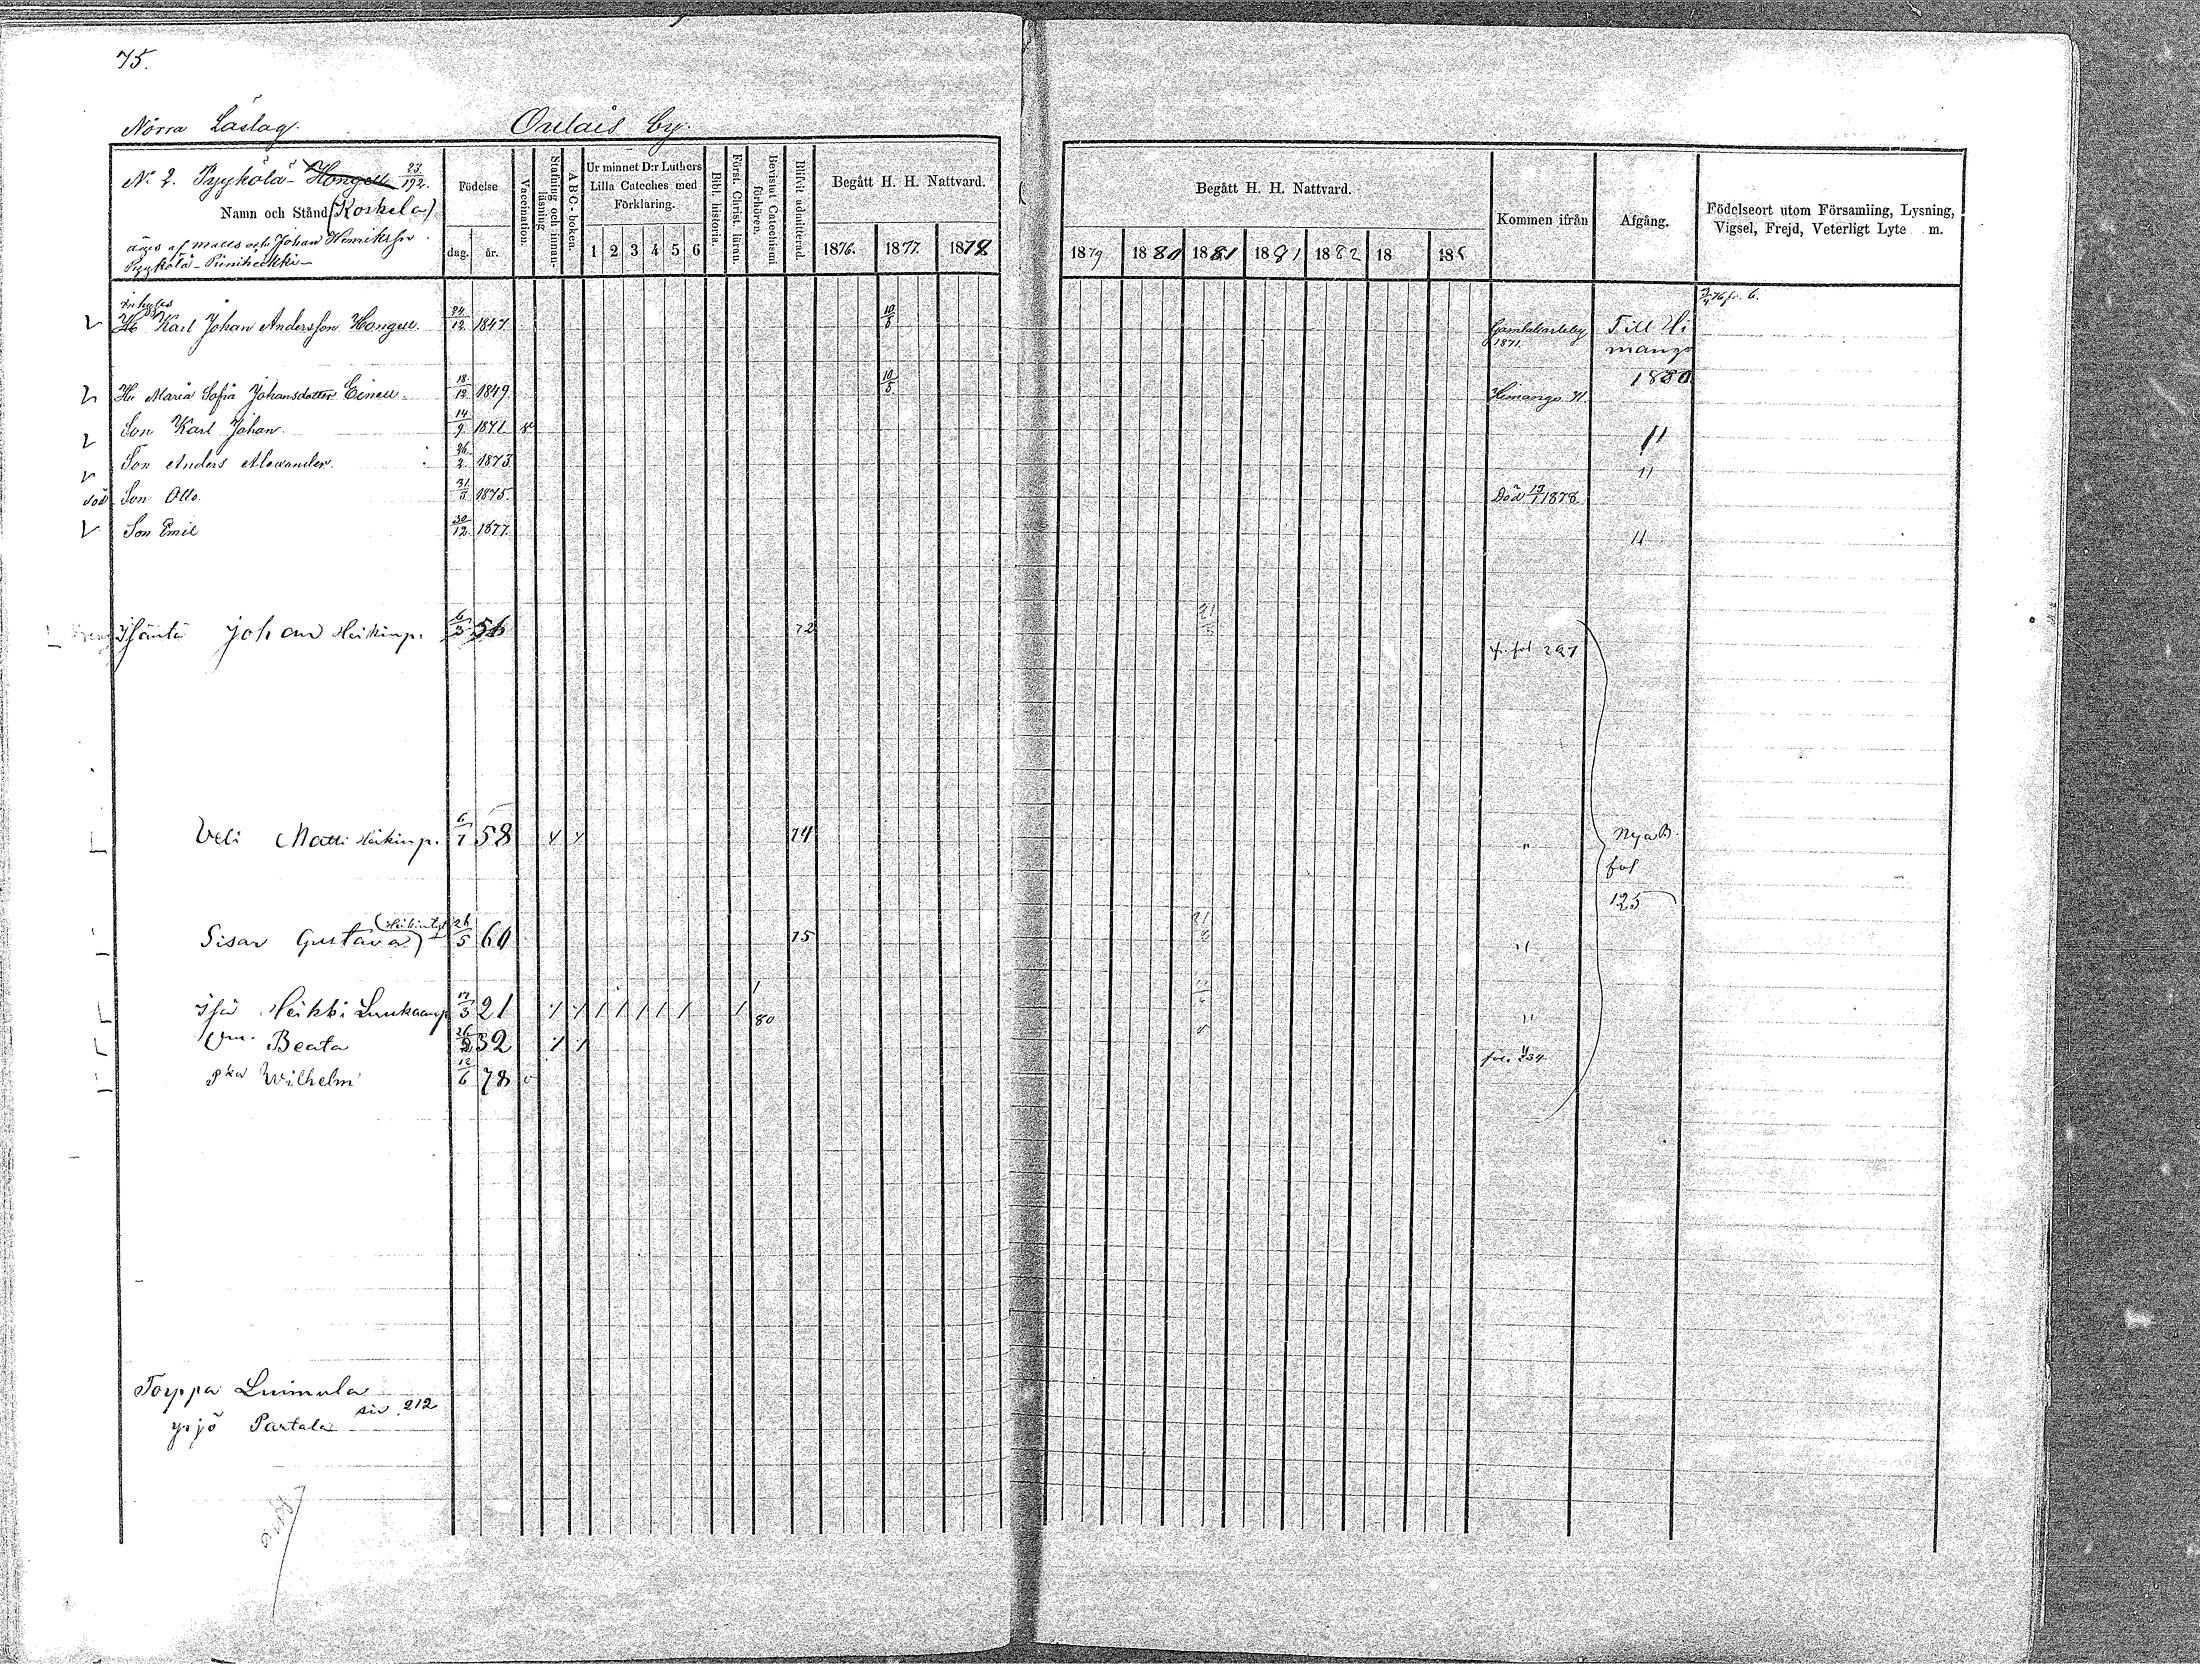 75.
Norra Läslag. Oulais by.
No 2. Pyykölä - Hongell 23/192.
Namn och Stånd (Koskela)
äges af Matts och Johan Henriksson
Pyykölä - Piniheikki
Födelse
dag. år.
Vaccination.
Stafning och innanläsning
A B C - boken.
Ur minnet D:r Luthers Lilla Cateches med Förklaring.
1 2 3 4 5 6
Bibl. historia.
Först. Christ. läran
Bevistat Catechismi förhören.
Blifvit admitterad
Begått H. H. Nattvard.
1876. 1877. 1878
Begått H. H. Nattvard.
1879 1880 1881 1881 1882 18 188
Kommen ifrån
Afgång.
Födelseort utom Församling, Lysning, Vigsel, Frejd, Veterligt Lyte m.
Inhyses
Karl Johan Andersson Hongell. 24/12 1847 10/8 Gamlakarleby 1871. Till Himango 1880 76 fr. 6.
Hu Maria Sofia Johansdotter Eineu. 18/12 1849 10/8 Himango 71.
Son Karl Johan. 14/9 1871 v "
Son Anders Alexander. 26/2 1873 "
död Son Otto. 31/8 1875. Död 19/1 1878.
Son Emil 30/12 1877. "
Isäntä Johan Heikinp. 6/3 56 72 21 fr. fol 297
Veli Matti Heikinp. 6/7 58 74 " Nya B. fol 125
Sisar Gustava (Heikintyt) 26/5 60 75 21/8 "
Isä Heikki Luukaanp 17/3 21 1 80 "
Vm. Beata 26 32 fol. 234
Pka Wilhelm 12/6 78 v
Torppa Luimula
yrjö Partala siv 212